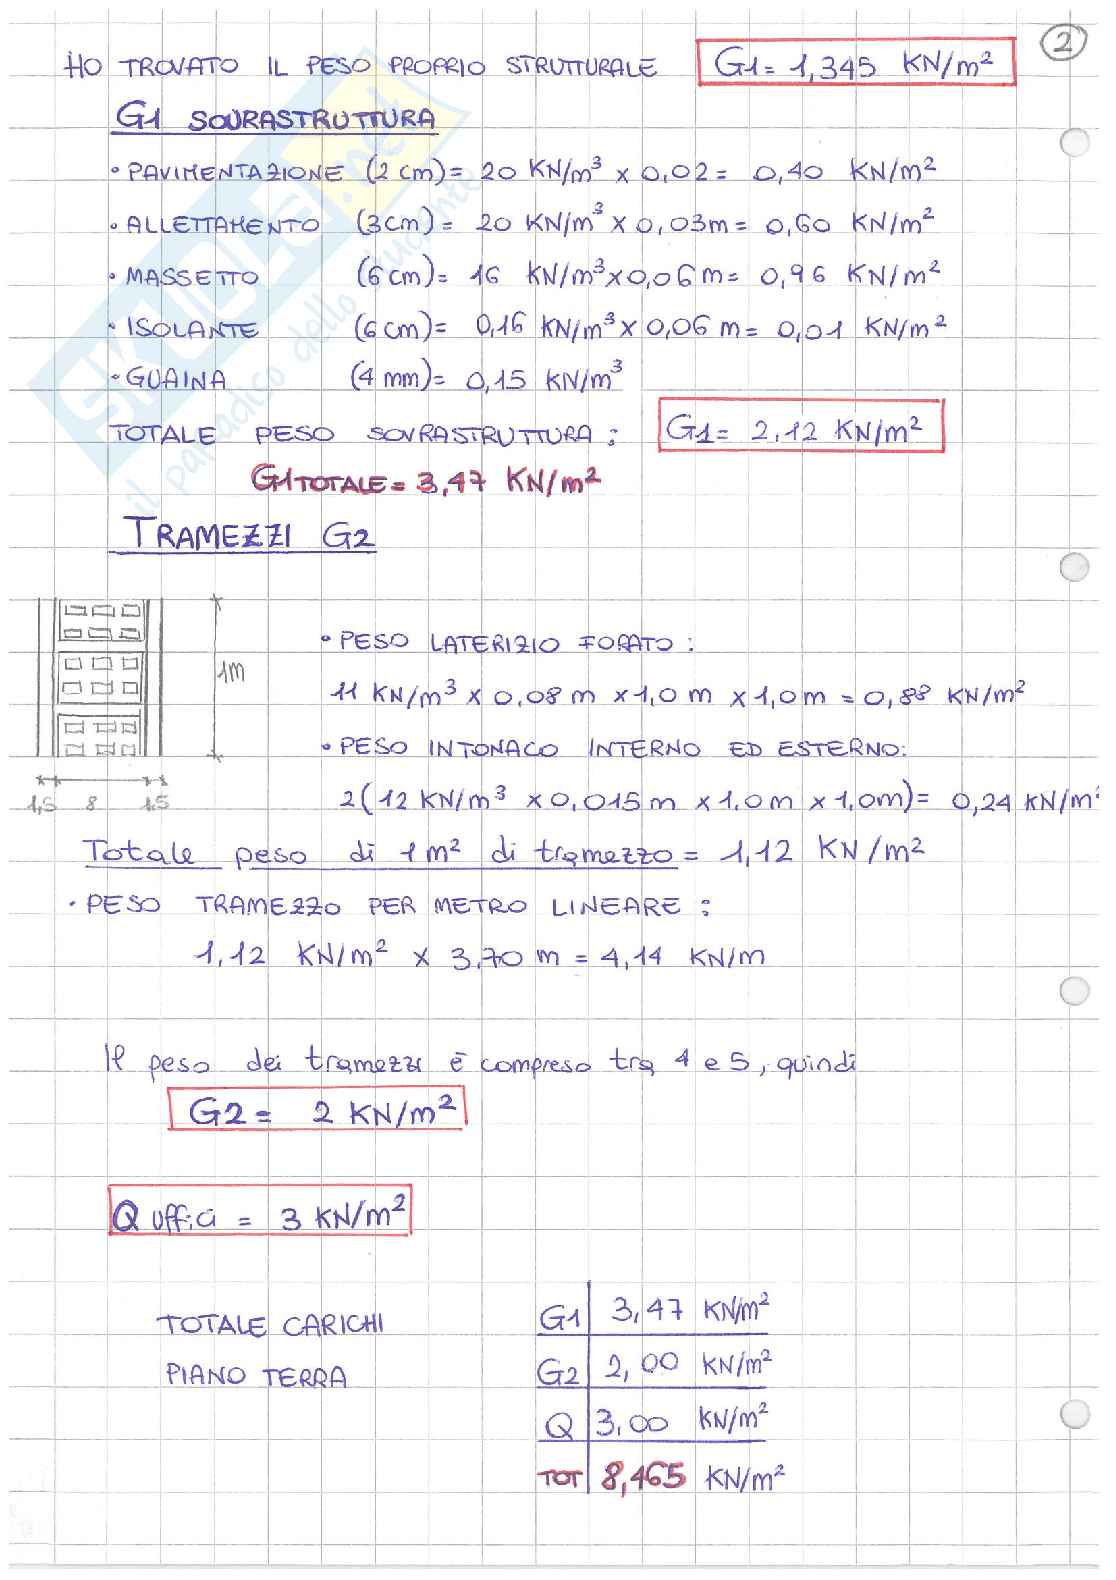 2
HO TROVATO IL PESO PROPRIO STRUTTURALE G1 = 1,345 KN/m²
G1 SOVRASTRUTTURA
• PAVIMENTAZIONE (2 cm) = 20 KN/m³ x 0,02 = 0,40 KN/m²
• ALLETTAMENTO (3cm) = 20 KN/m³ x 0,03m = 0,60 KN/m²
• MASSETTO (6 cm) = 16 KN/m³ x 0,06 m = 0,96 KN/m²
• ISOLANTE (6 cm) = 0,16 KN/m³ x 0,06 m = 0,01 KN/m²
• GUAINA (4 mm) = 0,15 KN/m³
TOTALE PESO SOVRASTRUTTURA : G1 = 2,12 KN/m²
G1 TOTALE = 3,47 KN/m²
TRAMEZZI G2
1m
• PESO LATERIZIO FORATO :
11 KN/m³ x 0,08 m x 1,0 m x 1,0 m = 0,88 KN/m²
• PESO INTONACO INTERNO ED ESTERNO:
1,5 8 1,5
2(12 KN/m³ x 0,015 m x 1,0 m x 1,0m) = 0,24 KN/m²
Totale peso di 1 m² di tramezzo = 1,12 KN/m²
• PESO TRAMEZZO PER METRO LINEARE :
1,12 KN/m² x 3,70 m = 4,14 KN/m
Il peso dei tramezzi è compreso tra 4 e 5, quindi
G2 = 2 KN/m²
Q uffici = 3 KN/m²
TOTALE CARICHI
PIANO TERRA
G1 3,47 KN/m²
G2 2,00 KN/m²
Q 3,00 KN/m²
TOT 8,465 KN/m²
SKUOLA.net
il paradiso dello studente